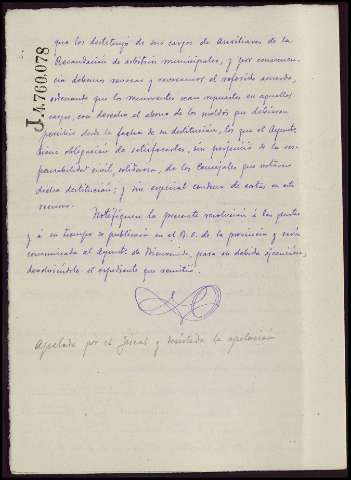 J.4.760.078
que los destituyó de sus cargos de Auxiliares de la
Recaudación de arbitrios municipales, y por consecuen-
cia debemos revocar y revocamos el referido acuerdo,
ordenando que los recurrentes sean repuestos en aquellos
cargos, con derecho al abono de los sueldos que debieron
percibir desde la fecha de su destitución, los que el Ayunto
tiene obligación de satisfacerles, sin perjuicio de la res-
ponsabilidad civil, solidaria, de los Concejales que votaron
dicha destitución; y sin especial condena de costas en este
recurso.
Notifíquese la presente resolución á las partes
y á su tiempo se publicará en el B. O. de la provincia y será
comunicada al Ayunto de para su debida ejecución,
devolviéndole el expediente que remitió.
Apelada por el Fiscal y desistida la apelación